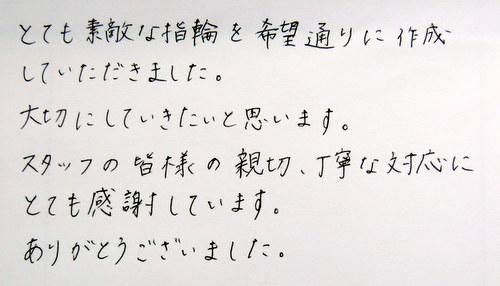 とても素敵な指輪を希望通りに作成
していただきました。
大切にしていきたいと思います。
スタッフの皆様の親切、丁寧な対応に
とても感謝しています。
ありがとうございました。